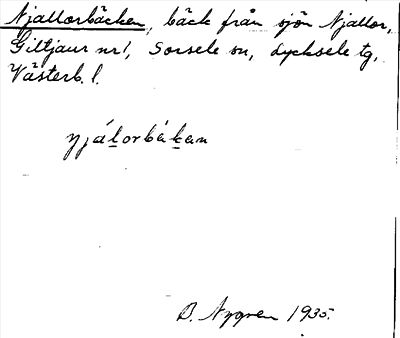 Njallorbäcken, bäck från sjön Njallor,
Giltjaur nr 1, Sorsele sn, Lycksele tg,
Västerb. l.
njálorbäkan
B. Nygren 1935.